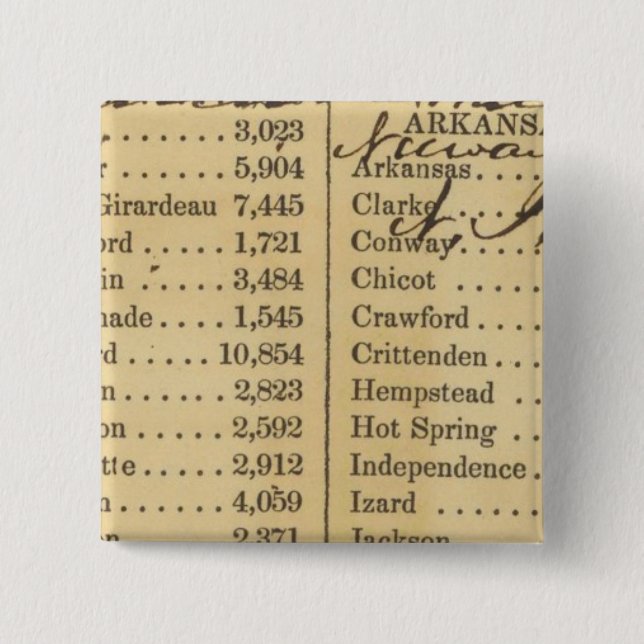 . . . . . . . 3,023
r . . . . . . 5,904
Girardeau 7,445
ord . . . . . 1,721
in . . . . . . 3,484
nade . . . . 1,545
rd . . . . . 10,854
n . . . . . . 2,823
on . . . . . . 2,592
tte . . . . . 2,912
n . . . . . . 4,059
on . . . . . . 2,371
ARKANSA
Arkansas. . . .
Clarke . . . . .
Conway. . . . .
Chicot . . . . .
Crawford . . . .
Crittenden . . .
Hempstead . .
Hot Spring . .
Independence .
Izard . . . . . .
Jackson